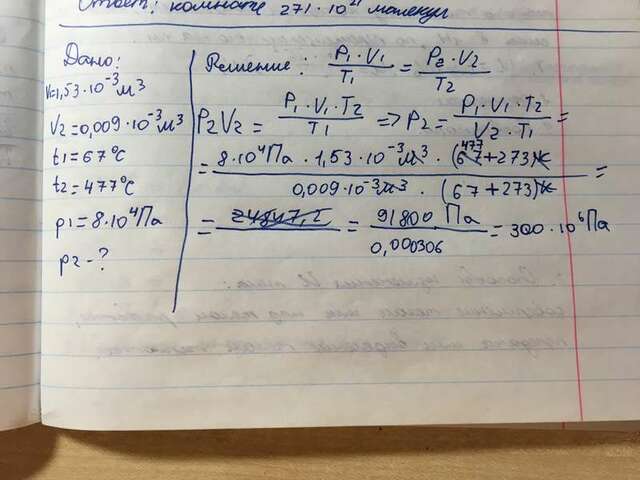 Ответ: комнате 271 · 10²¹ молекул
Дано:
V₁=1,53·10⁻³м³
V₂=0,009·10⁻³м³
t₁=67°C
t₂=477°C
p₁=8·10⁴Па
p₂-?
Решение: P₁·V₁/T₁ = P₂·V₂/T₂
P₂V₂ = P₁·V₁·T₂/T₁ => P₂ = P₁·V₁·T₂/V₂·T₁ =
= 8·10⁴Па · 1,53·10⁻³м³ · (477+273)К / 0,009·10⁻³м³ · (67+273)К =
= = 91800 Па / 0,000306 = 300·10⁶Па